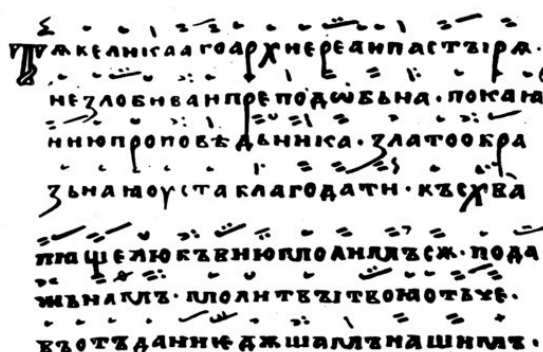 Тѧвеликаагоархиереаипастъірѧ·
незлобиваипреподѡбьна·покаꙗ
ниюпроповѣдьника·златообра
зьнаꙗоустаблагодати·въсхва
лꙗющелюбъвиюмолимъсѧ·пода
жьнамъ·молитвъітвоꙗотьче·
въотъданиѥдѫшамънашимъ·